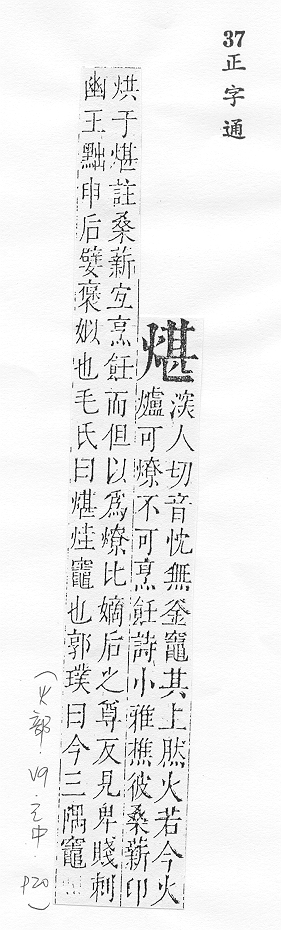 37
正字通
煁
湥人切音忱無釜竈其上然火若今火
爐可燎不可烹飪詩小雅樵彼桑薪卬
烘于煁註桑薪宐烹飪而但以爲燎比嫡后之尊反見卑賤刺
幽王黜申后嬖褒姒也毛氏曰煁烓竈也郭璞曰今三隅竈
(火部.V9.巳中.p20)